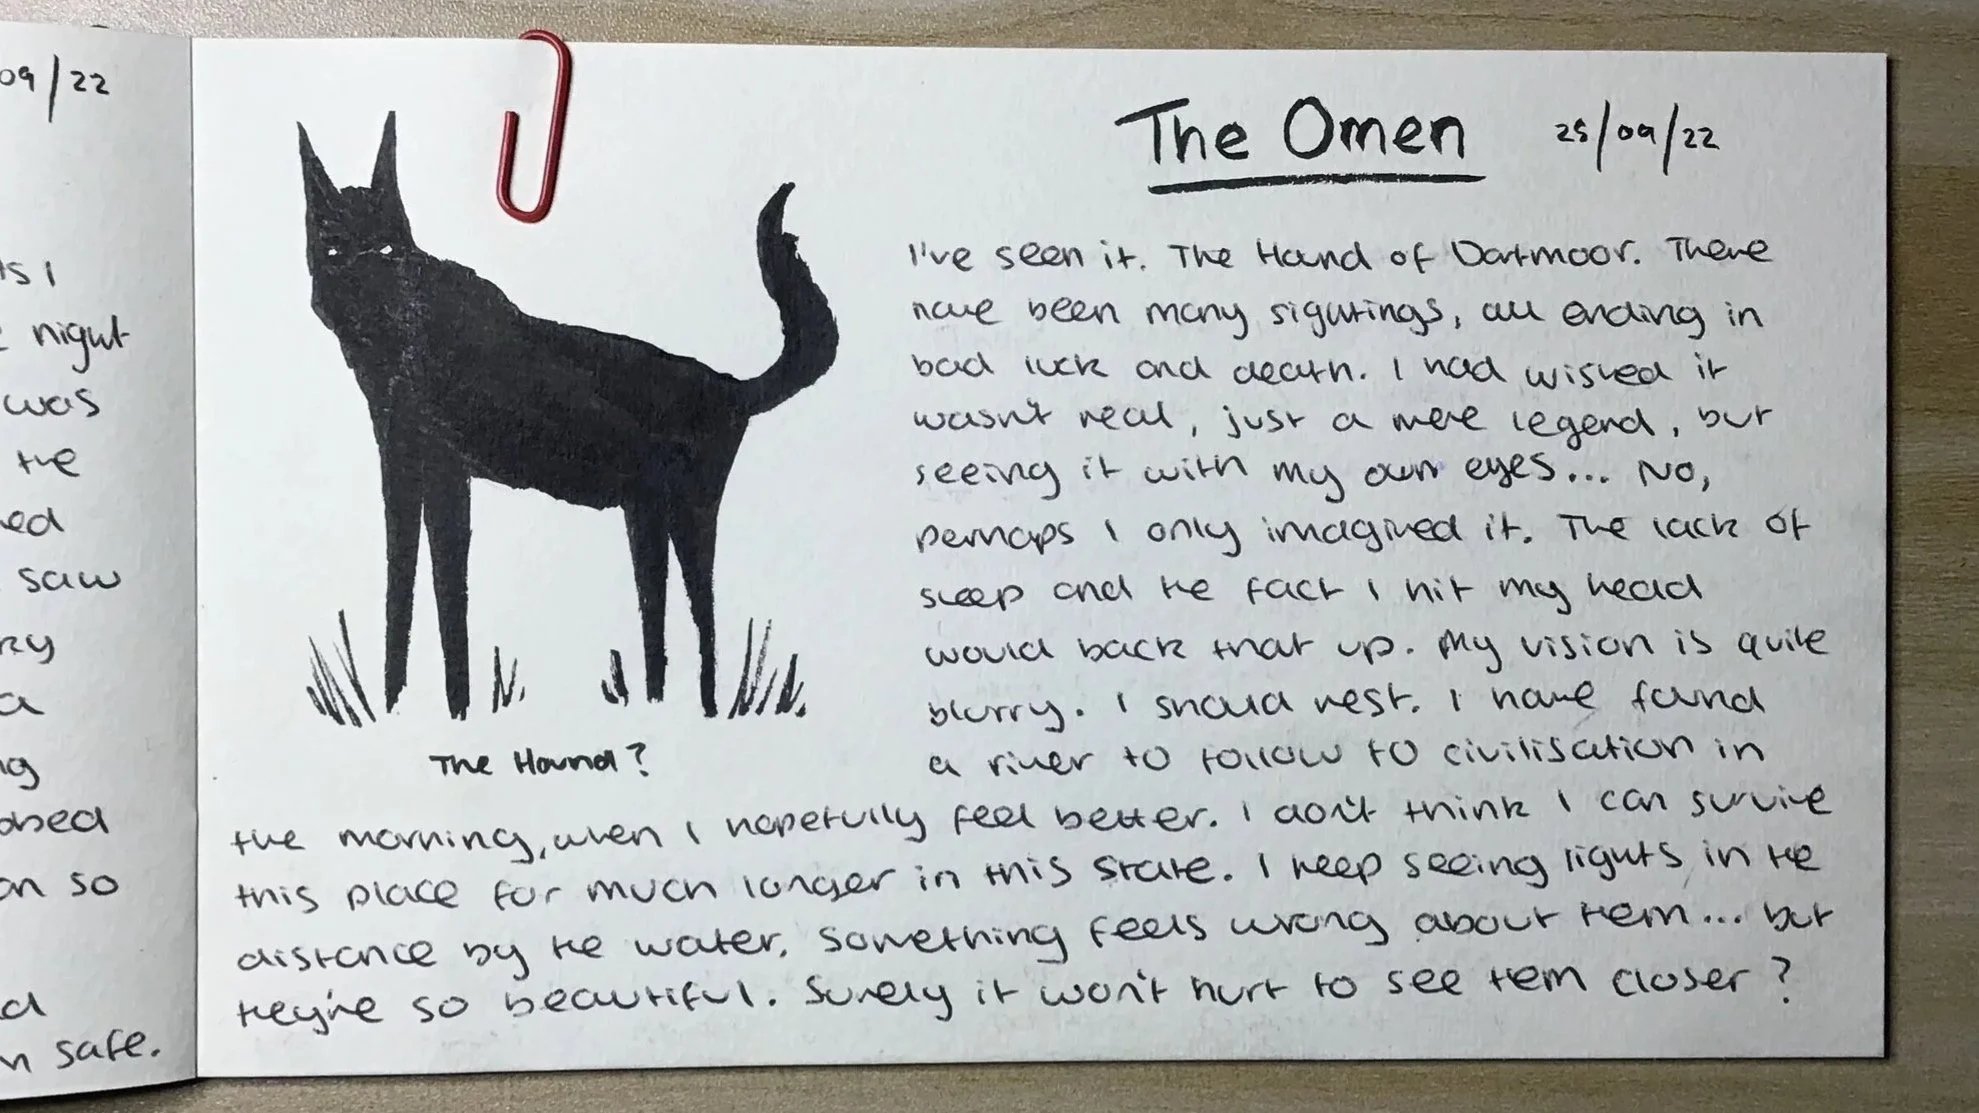 09/22
s I
night
was
the
ed
saw
ky
a
ng
obed
on so
d
n safe.
The Omen 25/09/22
I've seen it. The Hound of Dartmoor. There
have been many sightings, all ending in
bad luck and death. I had wished it
wasn't real, just a mere legend, but
seeing it with my own eyes... No,
perhaps I only imagined it. The lack of
sleep and the fact I hit my head
would back that up. My vision is quite
blurry. I should rest. I have found
a river to follow to civilisation in
the morning, when I hopefully feel better. I don't think I can survive
this place for much longer in this state. I keep seeing lights in the
distance by the water. Something feels wrong about them... but
they're so beautiful. Surely it won't hurt to see them closer?
The Hound?